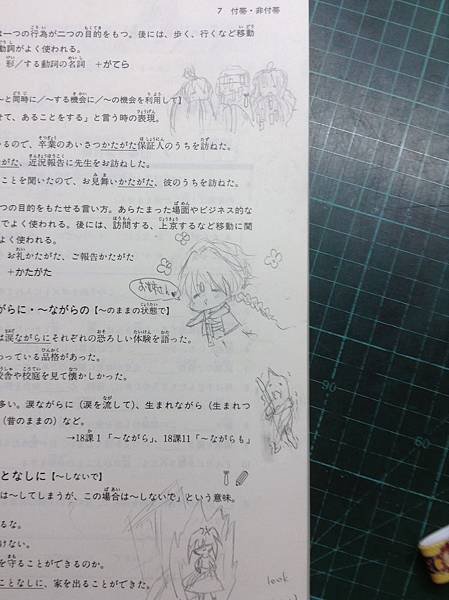 7 付帯・非付帯
は一つの行為が二つの目的をもつ。後には、歩く、行くなど移動
動詞がよく使われる。
形／する動詞の名詞 ＋がてら
～と同時に／～する機会に／～の機会を利用して】
せて、あることをする」と言う時の表現。
いるので、卒業のあいさつかたがた保証人のうちを訪ねた。
がた、近況報告に先生をお訪ねした。
ことを聞いたので、お見舞いかたがた、彼のうちを訪ねた。
つの目的をもたせる言い方。あらたまった場面やビジネス的な
でよく使われる。後には、訪問する、上京するなど移動に関
お礼かたがた、ご報告かたがた
＋かたがた
お姉さん
がらに・～ながらの【～のままの状態で】
は涙ながらにそれぞれの恐ろしい体験を語った。
わっている品格があった。
校舎や校庭を見て懐かしかった。
多い。涙ながらに（涙を流して）、生まれながら（生まれつ
（昔のままの）など。
→18課1「～ながら」、18課11「～ながらも」
となしに【～しないで】
は～してしまうが、この場合は～しないで」という意味。
るな。
けない。
を守ることができるのか。
ことなしに、家を出ることができた。
look
90
60